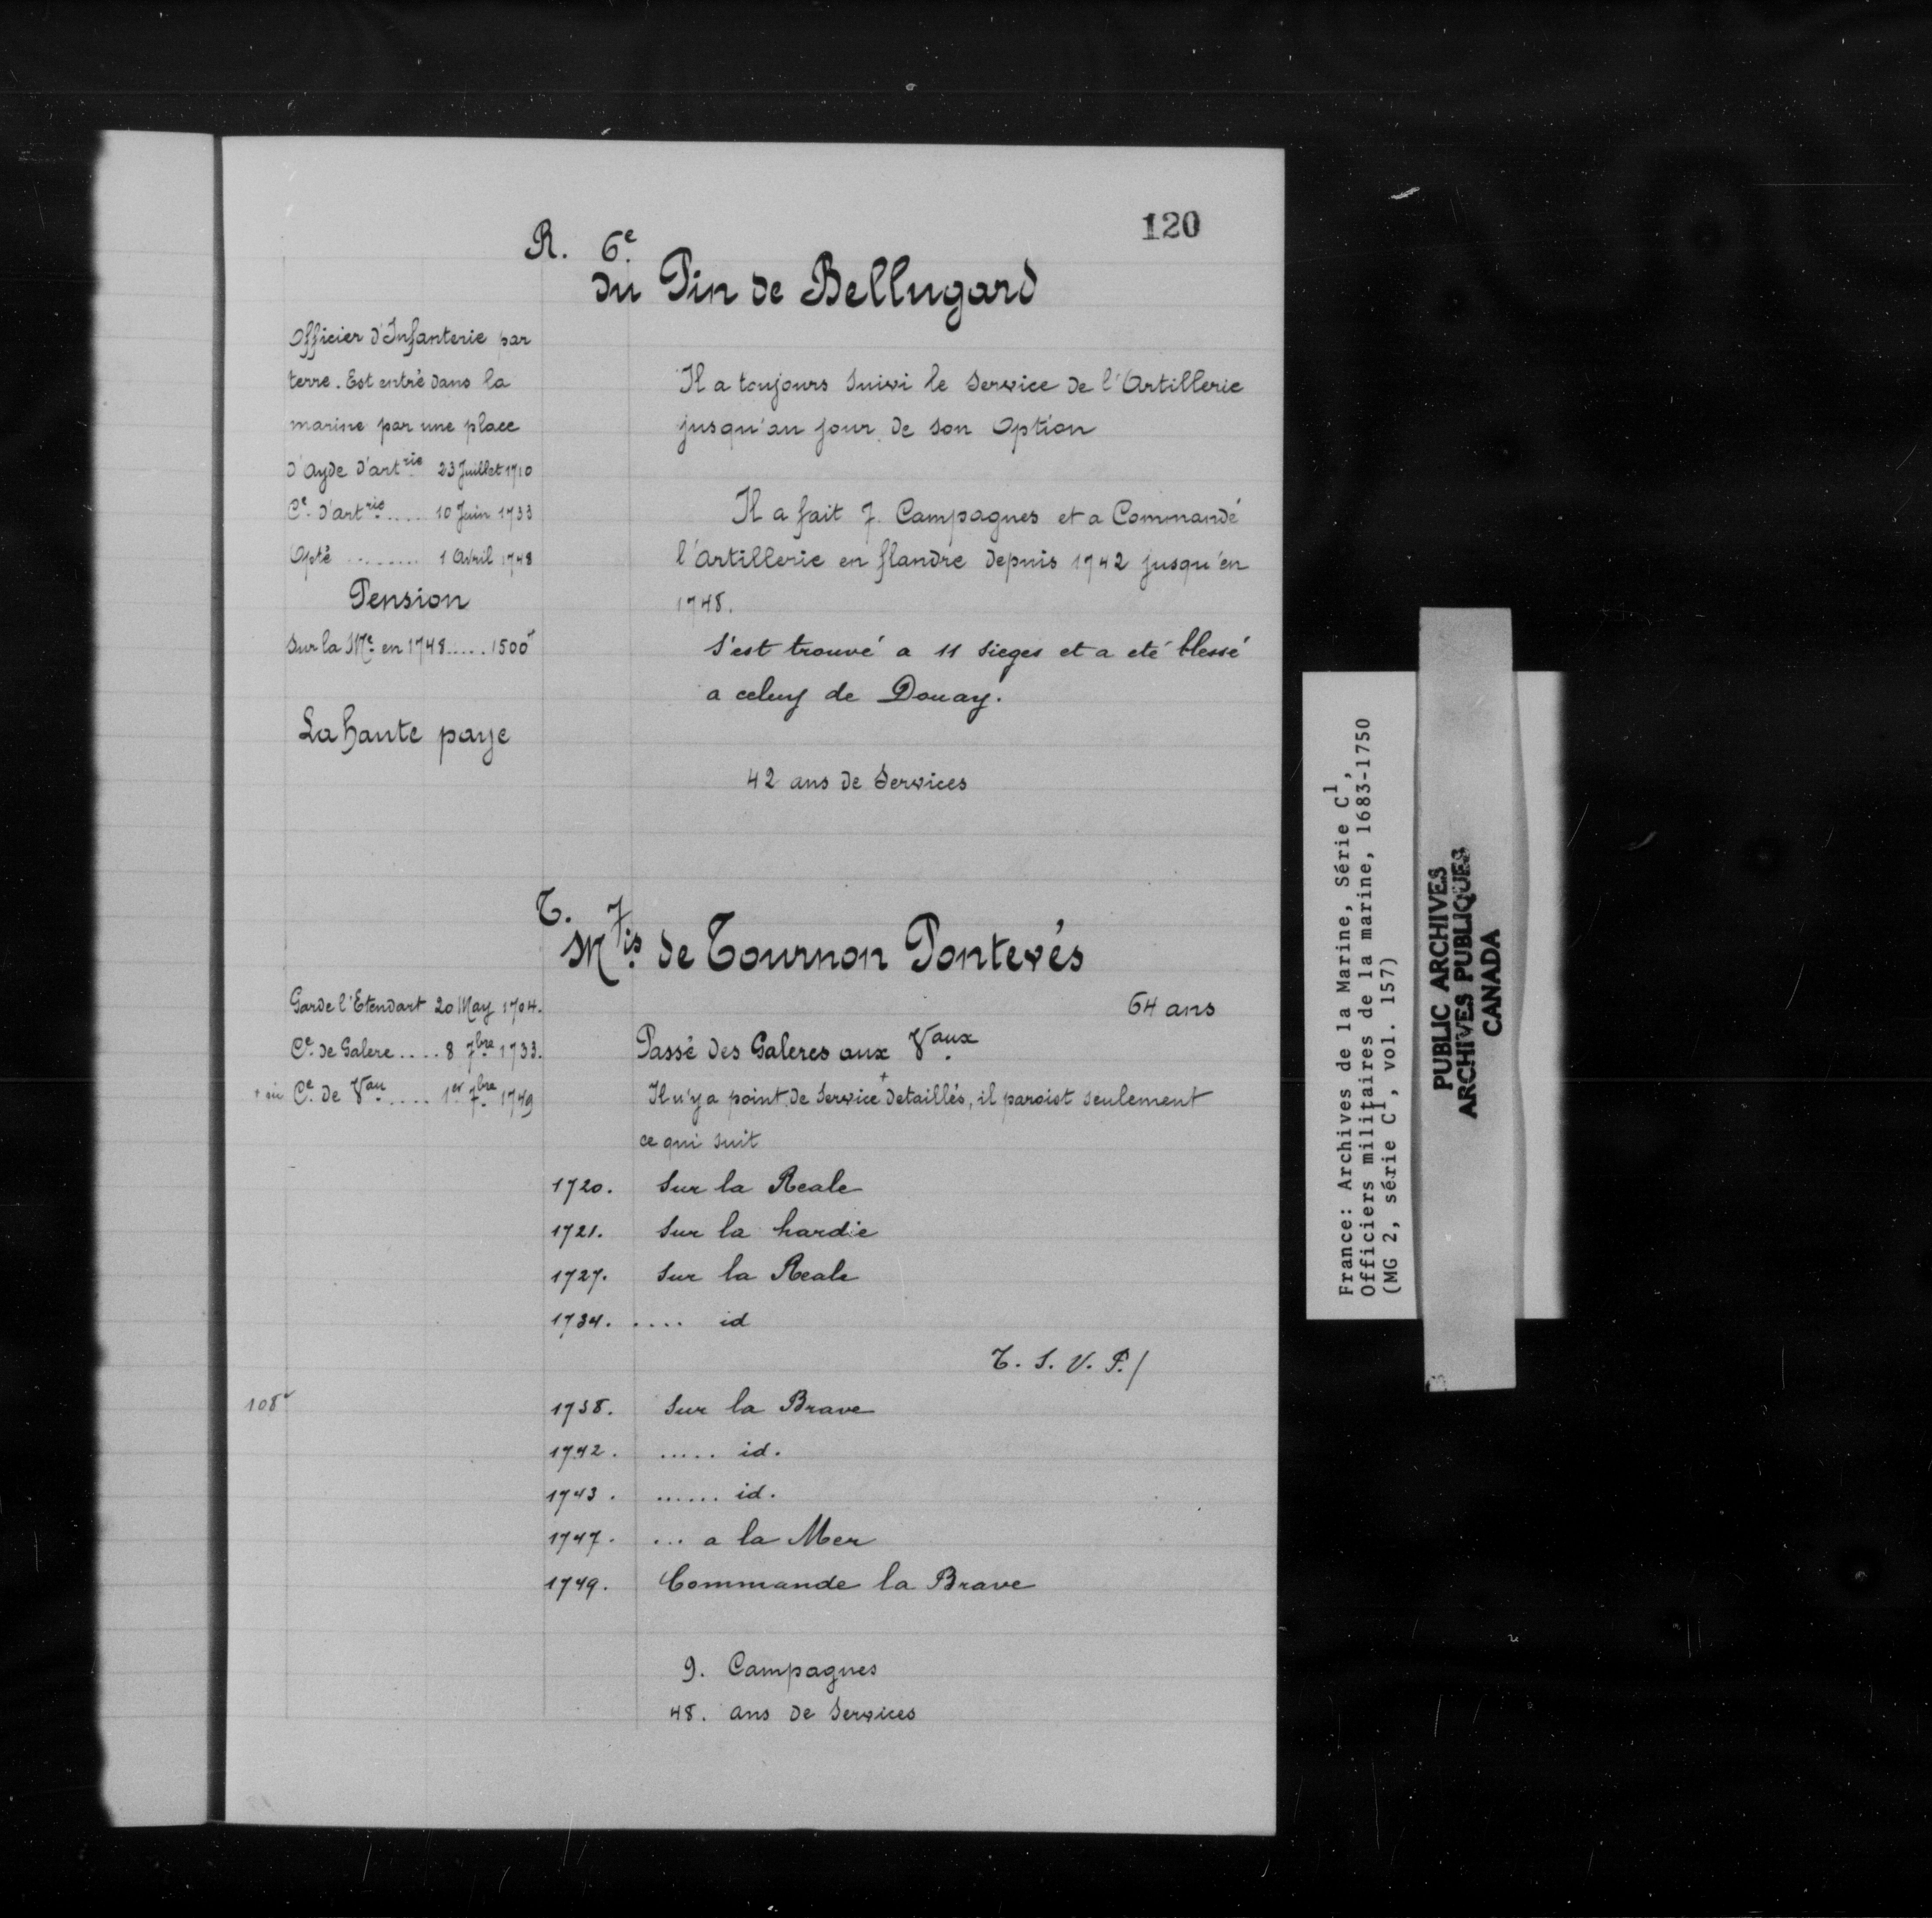 120
R. 6e
du Pin de Bellugard
Officier d'Infanterie par
terre. Est entré dans la
marine par une place
d'Ayde d'artrie 23 Juillet 1710
Ce d'artrie .... 10 Juin 1733
Opté ........ 1 Avril 1748
Pension
Sur la Me en 1748 ..... 1500
La haute paye
Il a toujours suivi le Service de l'Artillerie
jusqu'au jour de son Option
Il a fait 7. Campagnes et a Commandé
l'Artillerie en flandre depuis 1742 jusqu'en
1748.
S'est trouvé a 11 Sieges et a eté blessé
a celuy de Douay.
42 ans de Services
T. 7
Mis de Tournon Pontevés
Garde l'Etendart 20 May 1704.
Ce de Galere .... 8 7bre 1733.
Ce de Vau .... 1er 7bre 1749
64 ans
Passé des Galeres aux Vaux
Il n'y a point de Service + detaillés, il paroist seulement
ce qui suit
1720. Sur la Reale
1721. Sur la hardie
1727. Sur la Reale
1734. .... id
T. S. V. P./
108v
1738. Sur la Brave
1742. ..... id.
1743. ...... id.
1747. ... a la Mer
1749. Commande la Brave
9. Campagnes
48. ans de Services
France: Archives de la Marine, Série C1,
Officiers militaires de la marine, 1683-1750
(MG 2, série C1, vol. 157)
PUBLIC ARCHIVES
ARCHIVES PUBLIQUES
CANADA